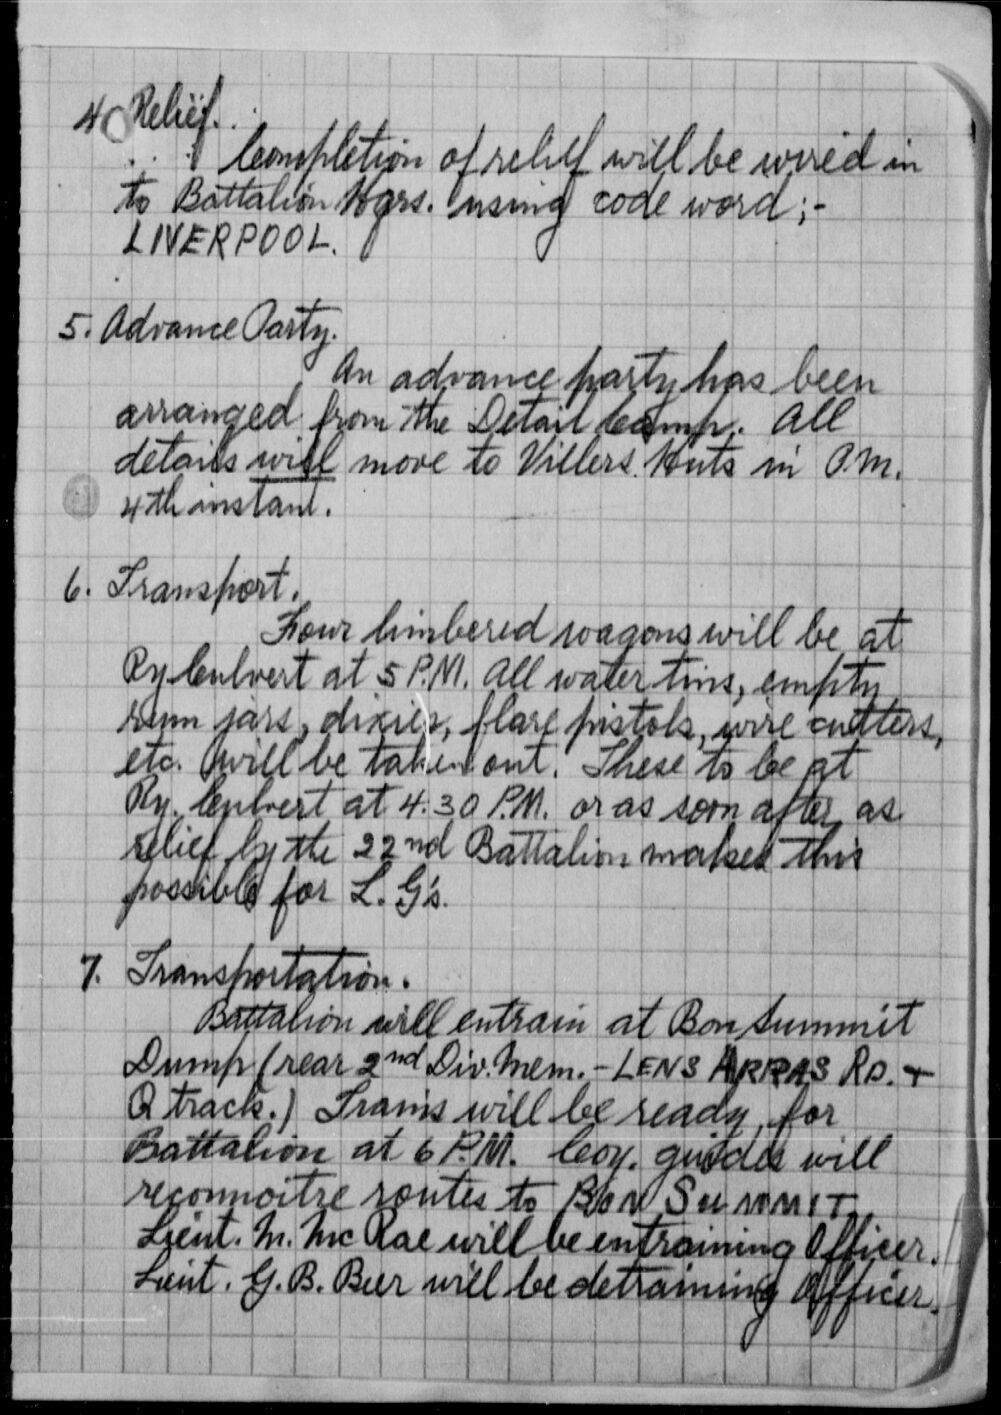 4. Relief.
Completion of relief will be wired in
to Battalion Hqrs. using code word;-
LIVERPOOL.
5. Advance Party.
An advance party has been
arranged from the Detail Camp. All
details will move to Villers Huts in P.M.
4th instant.
6. Transport.
Four limbered wagons will be at
Ry Culvert at 5 P.M. All water tins, empty
rum jars, dixies, flare pistols, wire cutters,
etc. will be taken out. These to be at
Ry. Culvert at 4.30 P.M. or as soon after as
relief by the 22nd Battalion makes this
possible for L.G's.
7. Transportation.
Battalion will entrain at Bon Summit
Dump (rear 2nd Div. Mem. - LENS ARRAS RD. +
Q track.) Trains will be ready for
Battalion at 6 P.M. Coy. guides will
reconnoitre routes to BON SUMMIT.
Lieut. M. McRae will be entraining Officer.
Lieut. G.B. Beer will be detraining Officer.